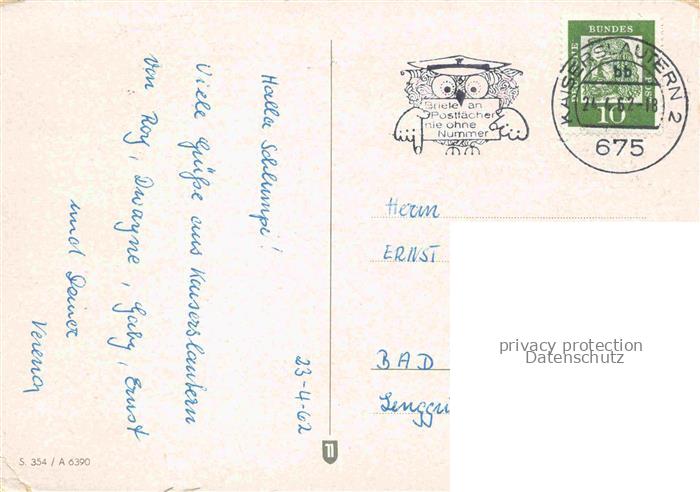 Hallo Schlumpi!
Viele Grüße aus Kaiserslautern
von Roy, Dwayne, Gaby, Ernst
und Deiner
Verena
23-4-62
S. 354 / A 6390
Briefe an
Postfächer
nie ohne
Nummer
BUNDES
10
KAISERSLAUTERN 2
bb
24.4.62-18
675
Herrn
ERNST
BAD
privacy protection
Datenschutz